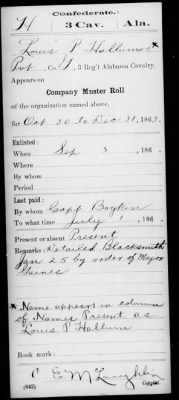 Confederate.
H 3 Cav. Ala.
Louis P Hallumore
Pvt, Co. 3 Reg't Alabama Cavalry.
Appears on
Company Muster Roll
of the organization named above,
for Oct 30 to Dec 31, 1863.
Enlisted:
When Sep 3, 186 .
Where
By whom
Period
Last paid:
By whom Capt Boykin
To what time July 1, 186 .
Present or absent Present
Remarks: Detailed Blacksmith
Jan 25 by order of Major
Gaines
*Name appears in column
of Names Present as
Louis P. Hallum
Book mark:
E McLaughlin
(642) Copyist.